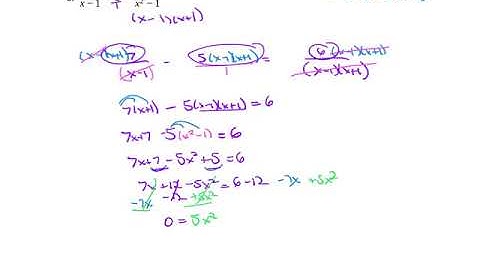 x-1 x²-1
(x-1)(x+1)
(x-1)(x+1)7 / (x-1) - 5(x-1)(x+1) / 1 = 6(x-1)(x+1) / (x-1)(x+1)
7(x+1) - 5(x-1)(x+1) = 6
7x+7 -5(x²-1) = 6
7x+7 -5x²+5 = 6
7x+12 -5x² = 6-12 -7x +5x²
-7x -12 +5x²
0 = 5x²